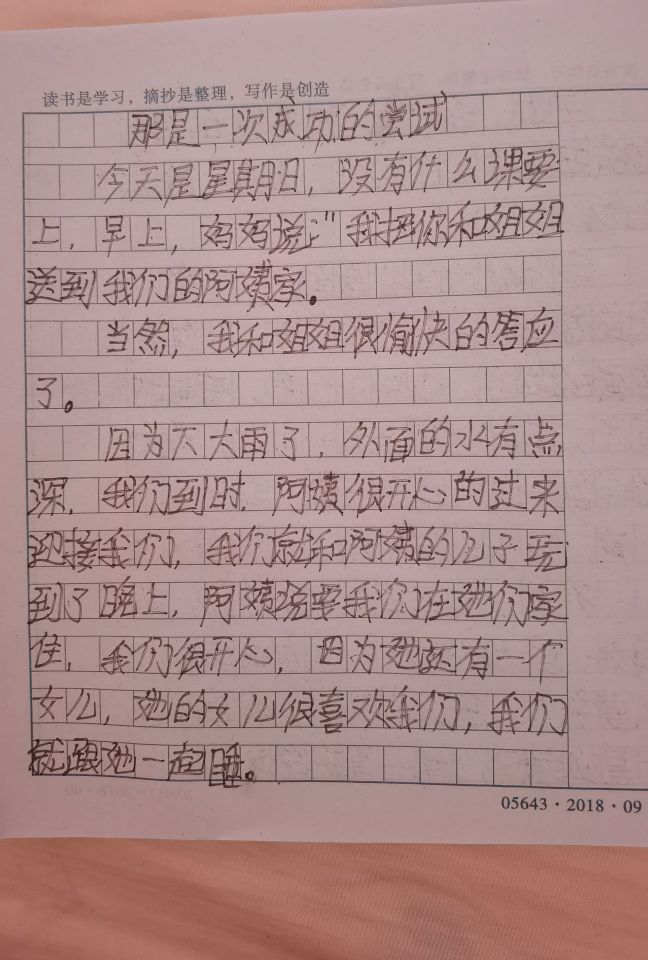 读书是学习，摘抄是整理，写作是创造
那是一次成功的尝试
今天是星期日，没有什么课要
上，早上，妈妈说："我把你和姐姐
送到我们的阿姨家。
当然，我和姐姐很愉快的答应
了。
因为下大雨了，外面的水有点
深，我们到时，阿姨很开心的过来
迎接我们，我们就和阿姨的儿子玩
到了晚上，阿姨说要我们在她们家
住，我们很开心，因为她还有一个
女儿，她的女儿很喜欢我们，我们
就跟她一起睡。
05643·2018·09